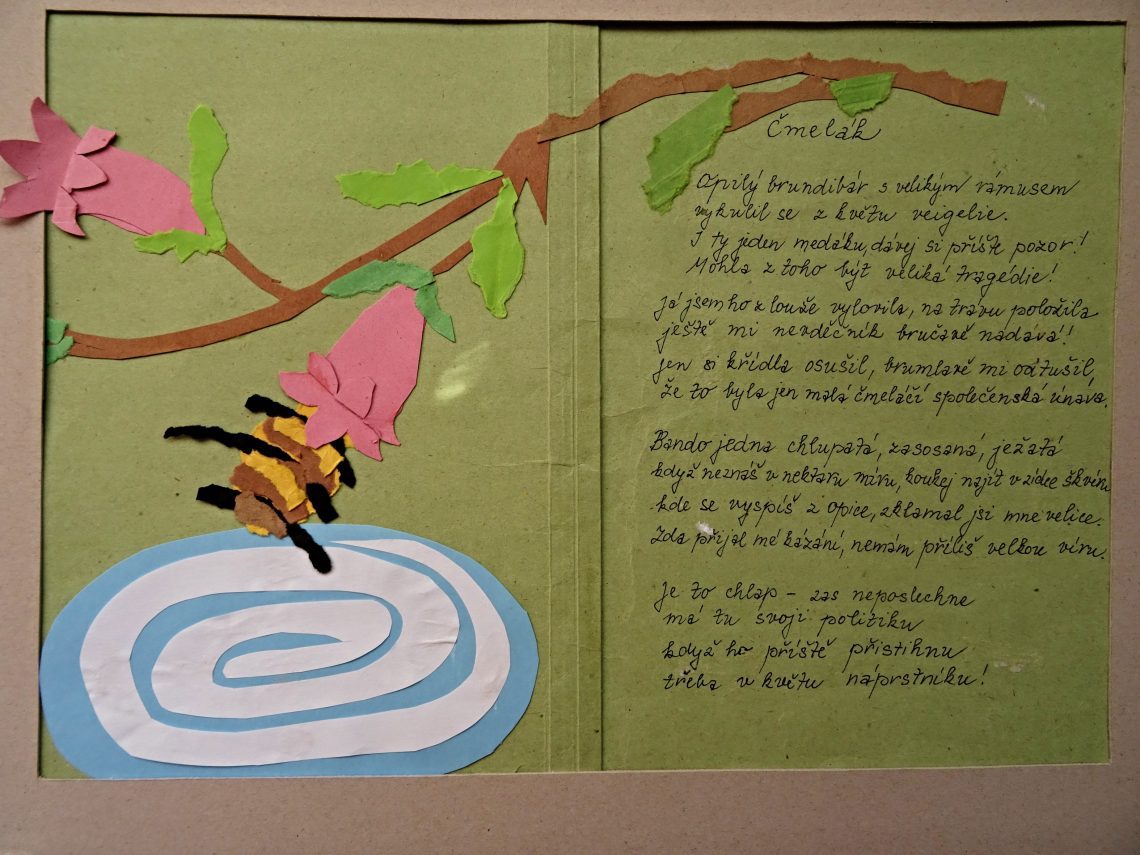 Čmelák
Opilý brundibár s velikým rámusem
vykulil se z květu veigelie.
I ty jeden medáku, dávej si příště pozor!
Mohla z toho být veliká tragédie!
Já jsem ho z louže vylovila, na trávu položila
ještě mi nevděčník bručavě nadává!
Jen si křídla osušil, brumlavě mi odtušil,
že to byla jen malá čmeláčí společenská únava.
Bando jedna chlupatá, zasosaná, ježatá
když neznáš v nektaru míru, koukej najít v zídce škvíru
kde se vyspíš z opice, zklamal jsi mne velice.
Zda přijal mé kázání, nemám příliš velkou víru.
Je to chlap - zas neposlechne
má tu svoji politiku
když ho příště přistihnu
třeba v květu náprstníku!